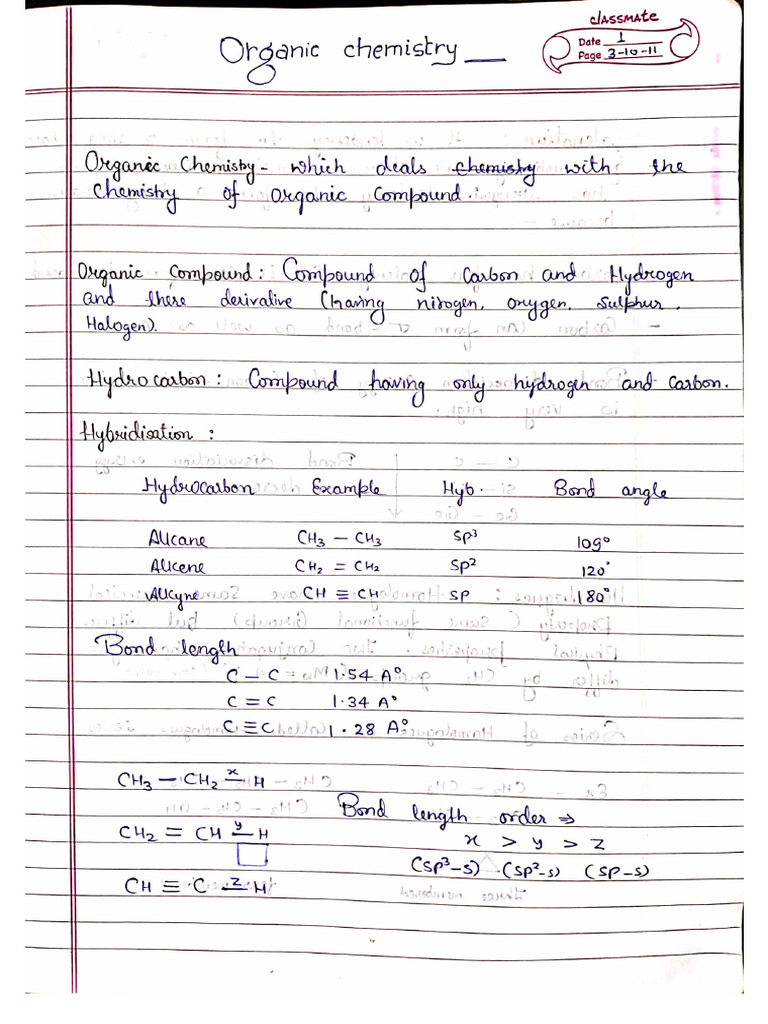 classmate
Date 1
Page 3-10-11
Organic chemistry
Organic Chemistry - which deals chemistry with the
chemistry of organic compound.
Organic compound: Compound of carbon and Hydrogen
and there derivative (having nitrogen, oxygen, sulphur,
Halogen).
Hydrocarbon: Compound having only hydrogen and carbon.
Hybridisation :
Hydrocarbon Example Hyb. Bond angle
Alkane CH₃ — CH₃ SP³ 109°
Alkene CH₂ = CH₂ SP² 120°
Alkyne CH ≡ CH SP 180°
Bond length
C — C = 1.54 A°
C = C 1.34 A°
C ≡ C 1.28 A°
CH₃ — CH₂ —x— H
Bond length order ⇒
CH₂ = CH —y— H x > y > z
(SP³-S) (SP²-S) (SP-S)
CH ≡ C —z— H